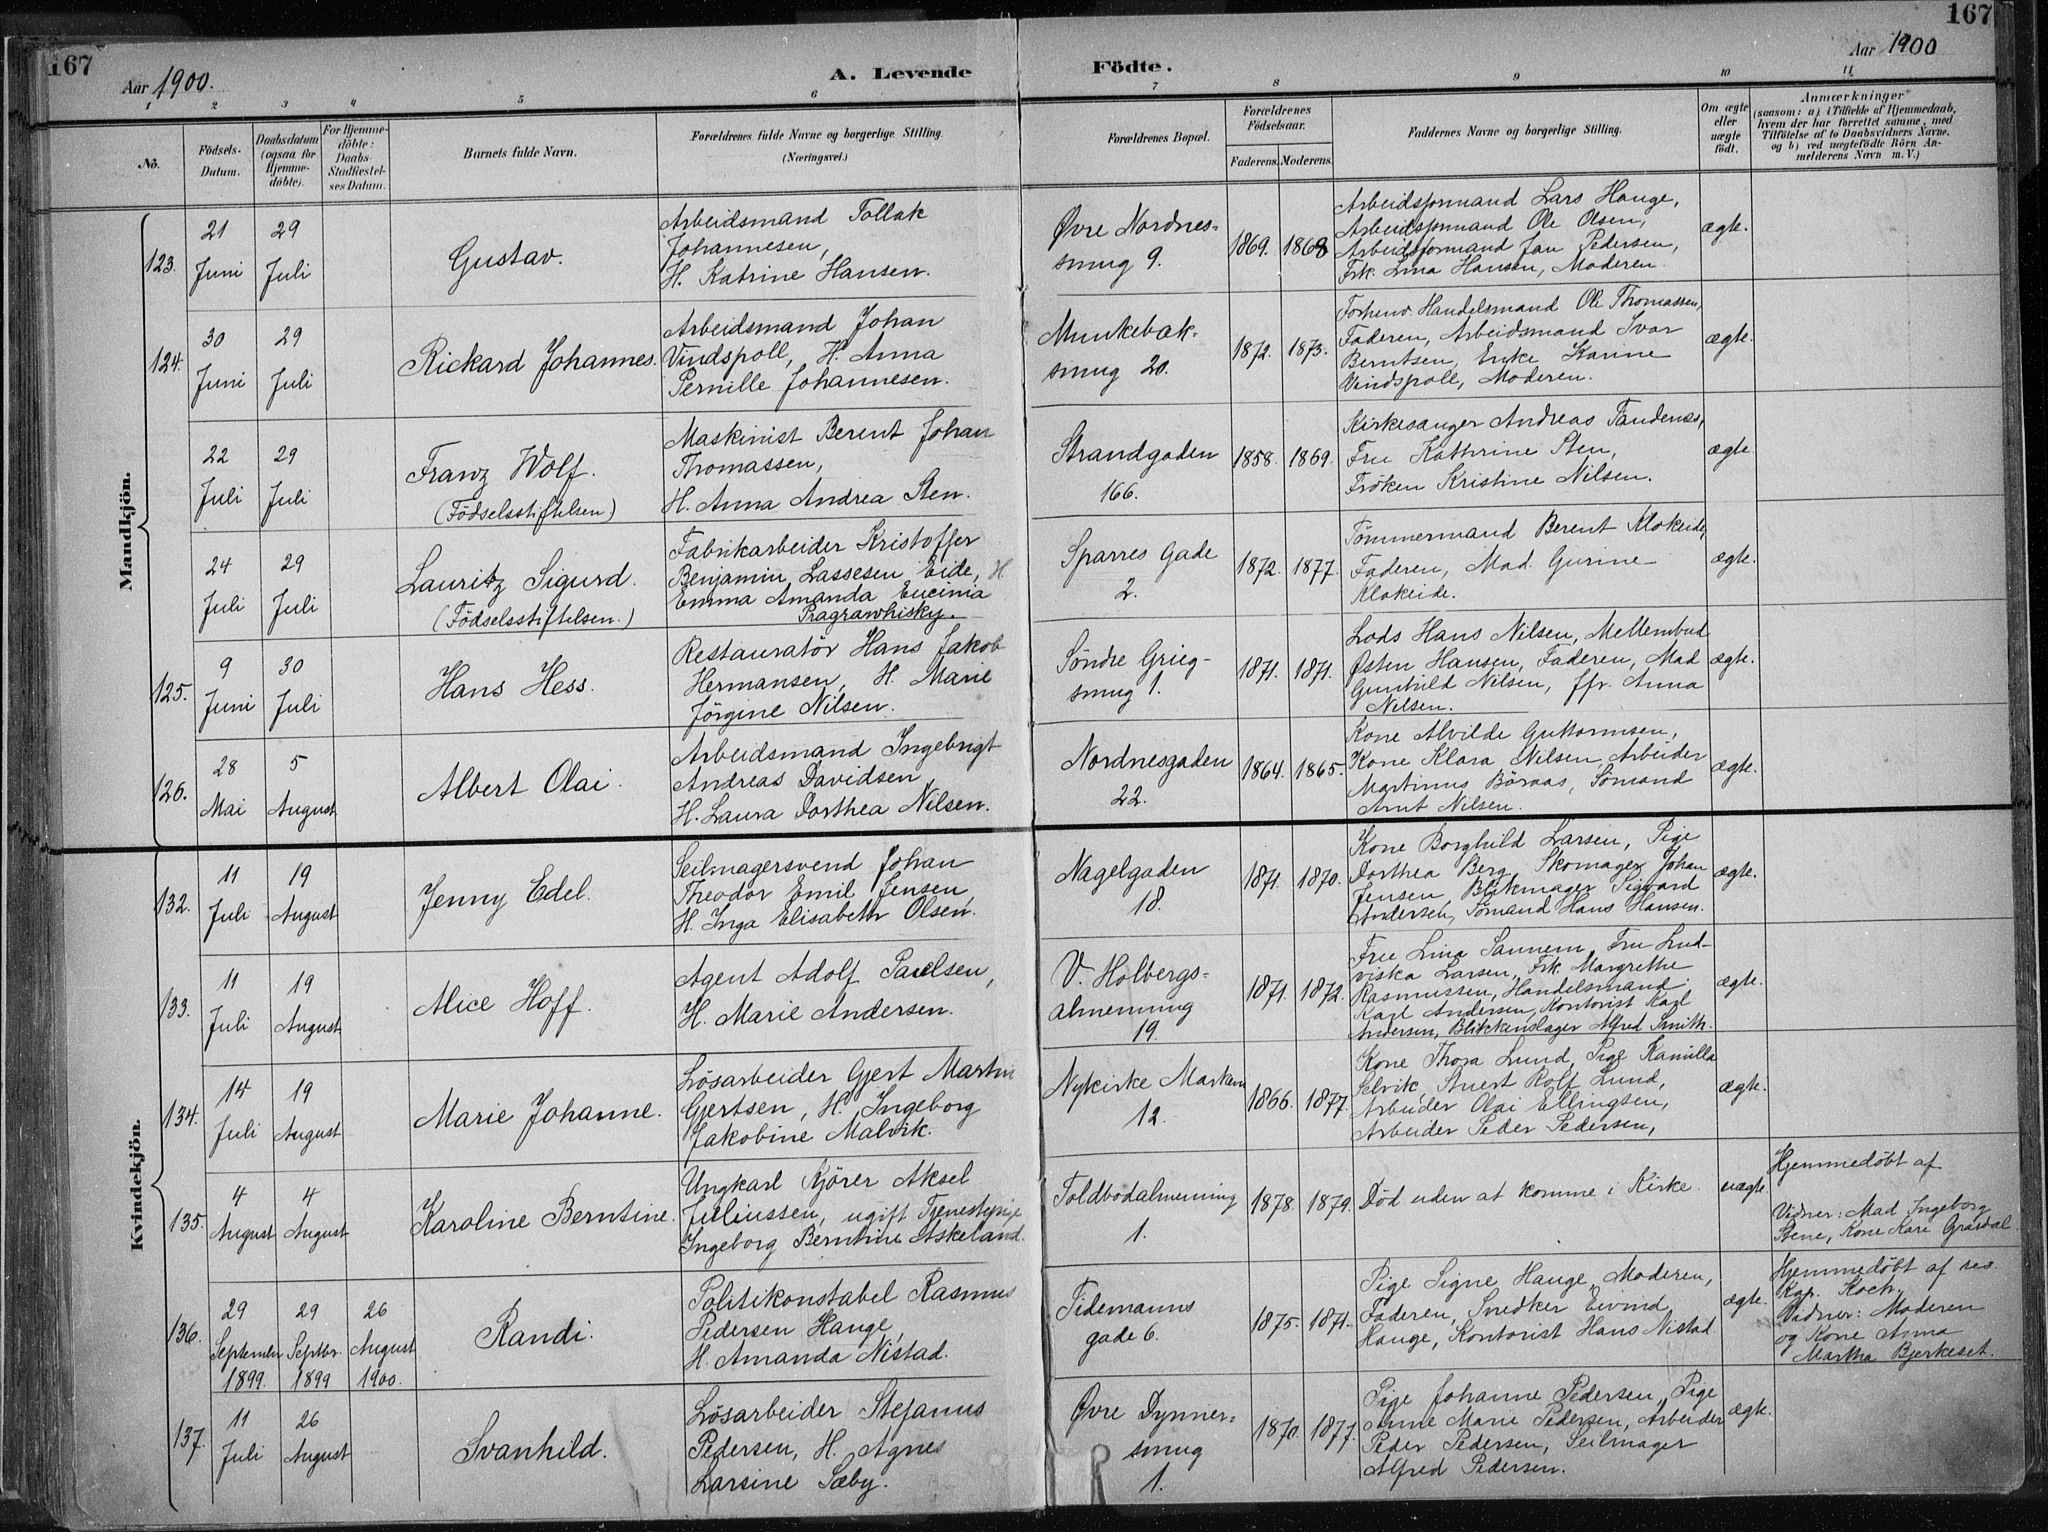 167
167
Aar 1900.
A. Levende
Födte.
Aar 1900
1 2 3 4 5 6 7 8 9 10 11
No.
Födsels-
Datum.
Daabsdatum
(ogsaa for
Hjemme-
döbte).
For Hjemme-
döbte:
Daabs-
Stadfæstel-
ses Datum.
Barnets fulde Navn.
Forældrenes fulde Navne og borgerlige Stilling.
(Næringsvei.)
Forældrenes Bopæl.
Forældrenes
Födselsaar.
Faderens. Moderens.
Faddernes Navne og borgerlige Stilling.
Om ægte
eller
uægte
födt.
Anmærkninger
(saasom: a) i Tilfælde af Hjemmedaab,
hvem der har forrettet samme, med
Tilföielse af to Daabsvidners Navne.
og b) ved uægtefödte Börn An-
melderens Navn m. V.)
Mandkjön.
123.
21
Juni
29
Juli
Gustav.
Arbeidsmand Tollak
Johannesen,
H. Katrine Hansen.
Øvre Nordnes-
smug 9.
1869. 1868
Arbeidsformand Lars Hauge,
Arbeidsformand Ole Olsen,
Arbeidsformand Jan Pedersen,
Frk. Lina Hansen, Moderen.
ægte.
124.
30
Juni
29
Juli
Rickard Johannes.
Arbeidsmand Johan
Vindspoll, H. Anna
Pernille Johannesen.
Munkebæk-
smug 20.
1872. 1873.
Forhenv. Handelsmand Ole Thomassen,
Faderen, Arbeidsmand Ivar
Berntsen, Enke Karine
Vindspoll, Moderen.
ægte.
22
Juli
29
Juli
Franz Wolf.
(Födselsstiftelsen)
Maskinist Berent Johan
Thomassen,
H. Anna Andrea Sten.
Strandgaden
166.
1858. 1869.
Kirkesanger Andreas Tandenæs,
Fru Kathrine Sten,
Fröken Kristine Nilsen.
ægte.
24
Juli
29
Juli
Lauritz Sigurd.
(Födselsstiftelsen.)
Fabrikarbeider Kristoffer
Benjamin Lassesen Eide, H.
Emma Amanda Eucinia
Pragrawhisky.
Sparres Gade
2.
1872. 1877.
Tømmermand Berent Klokeide,
Faderen, Mad. Gurine
Klokeide.
ægte.
125.
9
Juni
30
Juli
Hans Hess.
Restauratör Hans Jakob
Hermansen, H. Marie
Jörgine Nilsen.
Söndre Grieg-
smug 1.
1871. 1871.
Lods Hans Nilsen, Mellembud
Østen Hansen, Faderen, Mad
Gunhild Nilsen, Jfr. Anna
Nilsen.
ægte.
126.
28
Mai
5
August
Albert Olai.
Arbeidsmand Ingebrigt
Andreas Davidsen,
H. Laura Dorthea Nilsen.
Nordnesgaden
22.
1864. 1865.
Kone Alvilde Guttormsen,
Kone Klara Nilsen, Arbeider
Martinus Böraas, Sömand
Arnt Nilsen.
ægte.
Kvindekjön.
132.
11
Juli
19
August
Jenny Edel.
Seilmagersvend Johan
Theodor Emil Jensen,
H. Inga Elisabeth Olsen.
Nagelgaden
18.
1871. 1870.
Kone Borghild Larsen, Pige
Dorthea Berg, Skomager Johan
Jensen, Blikmager Sigvard
Andersen, Sömand Hans Hansen.
ægte.
133.
11
Juli
19
August
Alice Hoff.
Agent Adolf Paulsen,
H. Marie Andersen.
V. Holbergs-
almenning
19.
1871. 1872.
Fru Lina Sannem, Fru Lud-
viska Larsen, Frk. Margrethe
Rasmussen, Handelsmand
Karl Andersen, Kontorist Karl
Andersen, Blikkenslager Alfred Smith.
ægte.
134.
14
Juli
19
August
Marie Johanne.
Lösarbeider Gjert Martin
Gjertsen, H. Ingeborg
Jakobine Malvik.
Nykirke Marken
12.
1866. 1877.
Kone Thora Lund, Pige Kamilla
Selvik, Stuert Rolf Lund,
Arbeider Olai Ellingsen,
Arbeider Peder Pedersen,
ægte.
135.
4
August
4
August
Karoline Berntine.
Ungkarl Kjörer Aksel
Juliussen, ugift Tjenestepige
Ingeborg Berntine Askeland.
Toldbodalmenning
1.
1878. 1879.
Död uden at komme i Kirke.
uægte.
Hjemmedøbt af
Vidner: Mad. Ingeborg
Stene, Kone Kari Grasdal.
136.
29
September
1899.
29
Septbr.
1899
26
August
1900.
Randi.
Politikonstabel Rasmus
Pedersen Hauge,
H. Amanda Nistad.
Tidemanns
gade 6.
1875. 1871.
Pige Signe Hauge, Moderen,
Faderen, Snedker Eivind
Hauge, Kontorist Hans Nistad.
ægte.
Hjemmedøbt af res.
Kap. Koch.
Vidner: Moderen
og Kone Anna
Martha Bjerkeset.
137.
11
Juli
26
August
Svanhild.
Lösarbeider Stefanus
Pedersen, H. Agnes
Larsine Sæby.
Øvre Dynner-
smug
1.
1870. 1877.
Pige Johanne Pedersen, Pige
Anne Marie Pedersen, Arbeider
Peder Pedersen, Seilmager
Alfred Pedersen.
ægte.